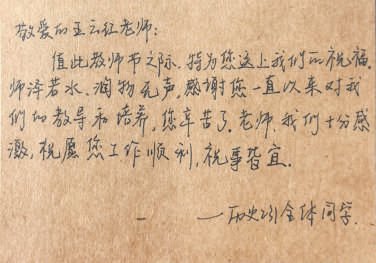 敬爱的王云红老师:
值此教师节之际,特为您送上我们的祝福。
师泽若水,润物无声,感谢您一直以来对我
们的教导和培养,您辛苦了。老师,我们十分感
激,祝愿您工作顺利,诸事皆宜。
——历史231全体同学